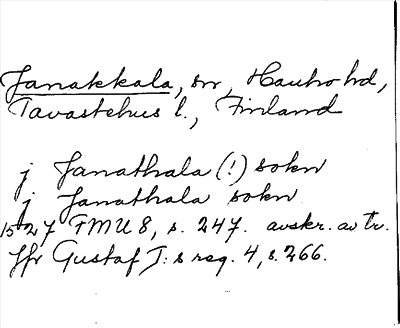 Janakkala, sn, Hauho hd,
Tavastehus l., Finland
j Janathala (!) sokn
j Janathala sokn
1527 FMU 8, s. 247. avskr. av tr.
Jfr Gustaf I:s reg. 4, s. 266.